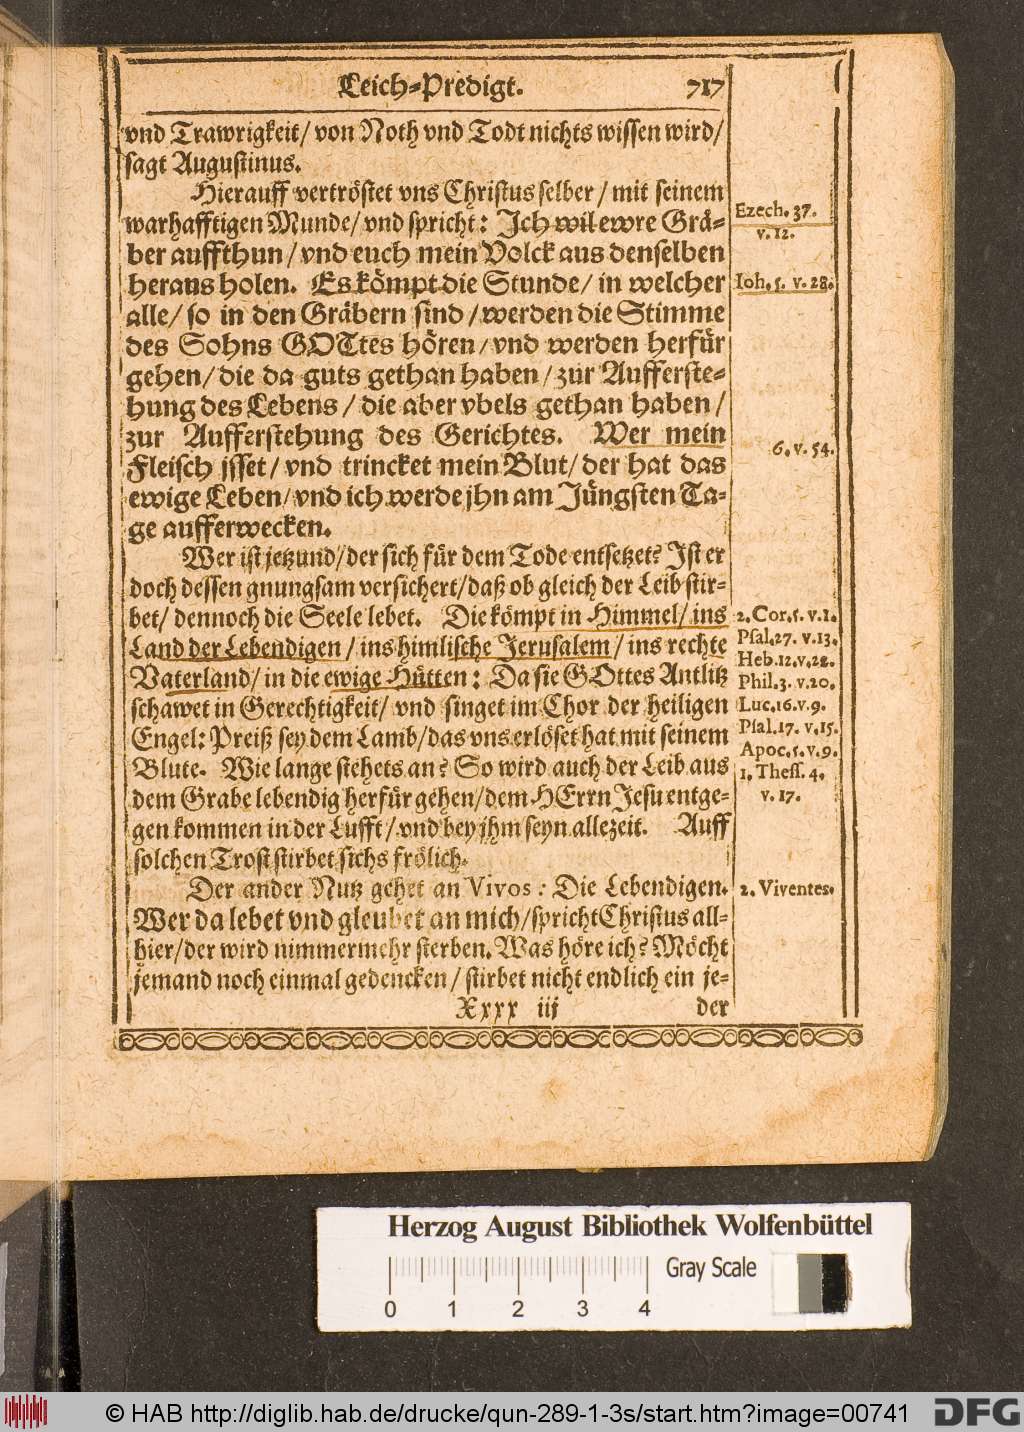 Leich-Predigt. 717
vnd Trawrigkeit/ von Noth vnd Todt nichts wissen wird/
sagt Augustinus.
Hierauff vertröstet vns Christus selber / mit seinem
warhafftigen Munde/ vnd spricht: Ich wil ewre Grä-
ber auffthun / vnd euch mein Volck aus denselben
heraus holen. Es kömpt die Stunde/ in welcher
alle/ so in den Gräbern sind / werden die Stimme
des Sohns GOTtes hören/ vnd werden herfür
gehen/ die da guts gethan haben / zur Aufferste-
hung des Lebens / die aber vbels gethan haben /
zur Aufferstehung des Gerichtes. Wer mein
Fleisch jsset/ vnd trincket mein Blut/ der hat das
ewige Leben/ vnd ich werde jhn am Jüngsten Ta-
ge aufferwecken.
Wer ist jetzund/ der sich für dem Tode entsetzet? Ist er
doch dessen gnungsam versichert/ daß ob gleich der Leib stir-
bet/ dennoch die Seele lebet. Die kömpt in Himmel/ ins
Land der Lebendigen / ins himlische Jerusalem/ ins rechte
Vaterland/ in die ewige Hütten: Da sie GOttes Antlitz
schawet in Gerechtigkeit/ vnd singet im Chor der heiligen
Engel: Preiß sey dem Lamb/ das vns erlöset hat mit seinem
Blute. Wie lange stehets an? So wird auch der Leib aus
dem Grabe lebendig herfür gehen/ dem HErrn Jesu entge-
gen kommen in der Lufft/ vnd bey jhm seyn allezeit. Auff
solchen Trost stirbet sichs frölich.
Der ander Nutz gehet an Vivos: Die Lebendigen.
Wer da lebet vnd gleubet an mich/ spricht Christus all-
hier/ der wird nimmermehr sterben. Was höre ich? Möcht
jemand noch einmal gedencken / stirbet nicht endlich ein je-
Xxxx iij der
Ezech. 37.
v. 12.
Ioh. 5. v. 28.
6. v. 54.
2. Cor. 5. v. 1.
Psal. 27. v. 13.
Heb. 12. v. 22.
Phil. 3. v. 20.
Luc. 16. v. 9.
Psal. 17. v. 15.
Apoc. 5. v. 9.
1. Thess. 4.
v. 17.
2. Viventes.
Herzog August Bibliothek Wolfenbüttel
0 1 2 3 4
Gray Scale
© HAB http://diglib.hab.de/drucke/qun-289-1-3s/start.htm?image=00741
DFG